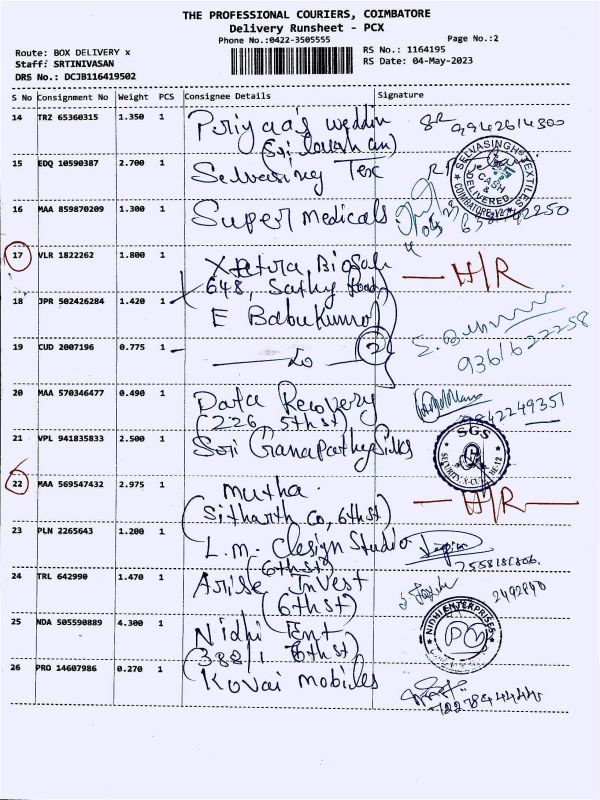 THE PROFESSIONAL COURIERS, COIMBATORE
Delivery Runsheet - PCX
Phone No.:0422-3505555
Page No.:2
Route: BOX DELIVERY x
Staff: SRTINIVASAN
DRS No.: DCJB116419502
RS No.: 1164195
RS Date: 04-May-2023
S No Consignment No Weight PCS Consignee Details Signature
14 TRZ 65360315 1.350 1 Priyaa's weddin
9942614300
15 EDQ 10590387 2.700 1 Selvasing Tex
SELVASINGH TEXTILES
CASH & DELIVERED
COIMBATORE
16 MAA 859870209 1.300 1 Super Medicals
17 VLR 1822262 1.800 1 H/R
648, Sathy Road
18 JPR 502426284 1.420 1 E Babukumar
19 CUD 2007196 0.775 1 2
9361622258
20 MAA 570346477 0.490 1 Data Recovery
(226 5th st)
9842249351
21 VPL 941835833 2.500 1 Sri Ganapathy Silks
SGS
SECURITY
22 MAA 569547432 2.975 1 Mutha H/R
(Sitharth Co, 6th st)
23 PLN 2265643 1.200 1 L.M. Design Studio
(6th st)
24 TRL 642990 1.470 1 Arise Invest
(6th st)
2492840
25 NDA 505590889 4.300 1 Nidhi Ent
NIDHI ENTERPRISES
(388/1 6th st)
26 PRO 14607986 0.270 1 Kovai Mobiles